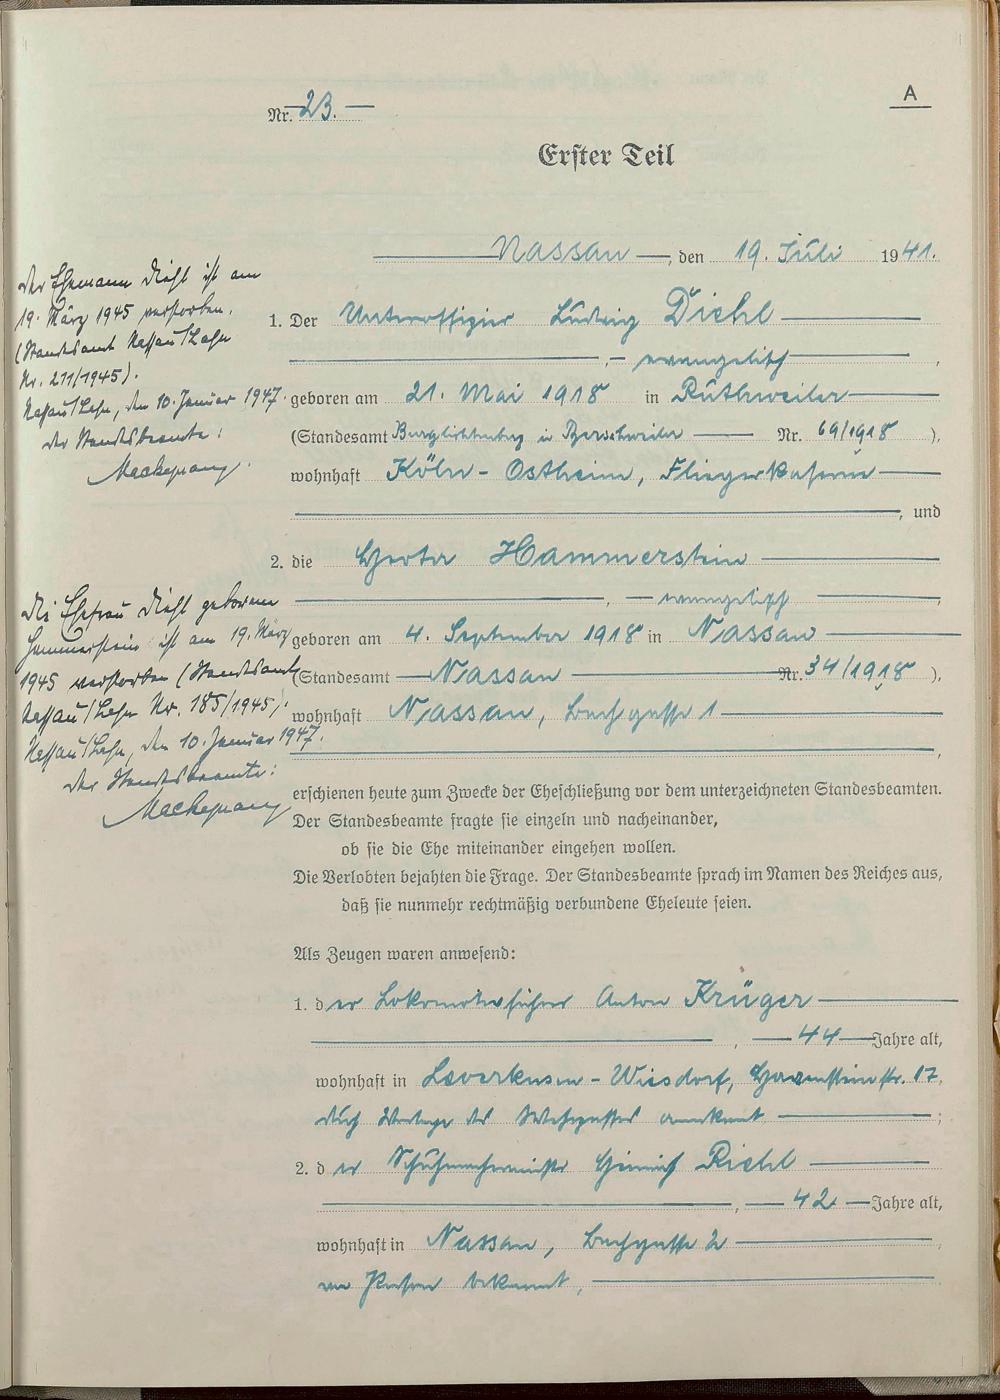 A
Nr. 23. —
Erster Teil
Nassau, den 19. Juli 1941.
Der Ehemann Diehl ist am
19. März 1945 verstorben.
(Standesamt Nassau/Lahn
Nr. 211/1945).
Nassau/Lahn, den 10. Januar 1947.
Der Standesbeamte:
1. Der Unteroffizier Ludwig Diehl
, — evangelisch ,
geboren am 21. Mai 1918 in Ruthweiler
(Standesamt Burglichtenberg in Nr. 69/1918 ),
wohnhaft Köln - Ostheim, Fliegerkaserne
, und
2. die Herta Hammerstein
, — evangelisch ,
geboren am 4. September 1918 in Nassau
(Standesamt Nassau Nr. 34/1918 ),
wohnhaft Nassau, Bachgasse 1
,
Die Ehefrau Diehl geborene
Hammerstein ist am 19. März
1945 verstorben (Standesamt
Nassau/Lahn Nr. 185/1945).
Nassau/Lahn, den 10. Januar 1947.
Der Standesbeamte:
erschienen heute zum Zwecke der Eheschließung vor dem unterzeichneten Standesbeamten.
Der Standesbeamte fragte sie einzeln und nacheinander,
ob sie die Ehe miteinander eingehen wollen.
Die Verlobten bejahten die Frage. Der Standesbeamte sprach im Namen des Reiches aus,
daß sie nunmehr rechtmäßig verbundene Eheleute seien.
Als Zeugen waren anwesend:
1. der Lokomotivführer Anton Krüger
, — 44 — Jahre alt,
wohnhaft in Leverkusen - Wiesdorf, 17,
durch Vorlage des Wehrpasses anerkannt ;
2. der Schuhmachermeister Heinrich Diehl
, — 42 — Jahre alt,
wohnhaft in Nassau, Bachgasse 2
von Person bekannt,